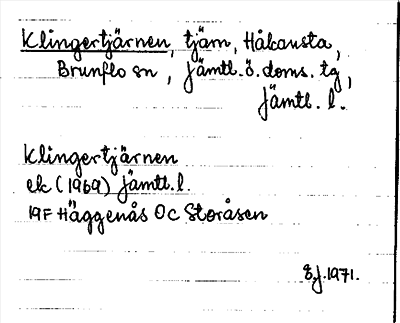 Klingertjärnen, tjärn, Håkansta,
Brunflo sn, Jämtl. ö. doms. tg,
Jämtl. l.
Klingertjärnen
ek (1969) Jämtl. l.
19F Häggenås OC Storåsen
1971.